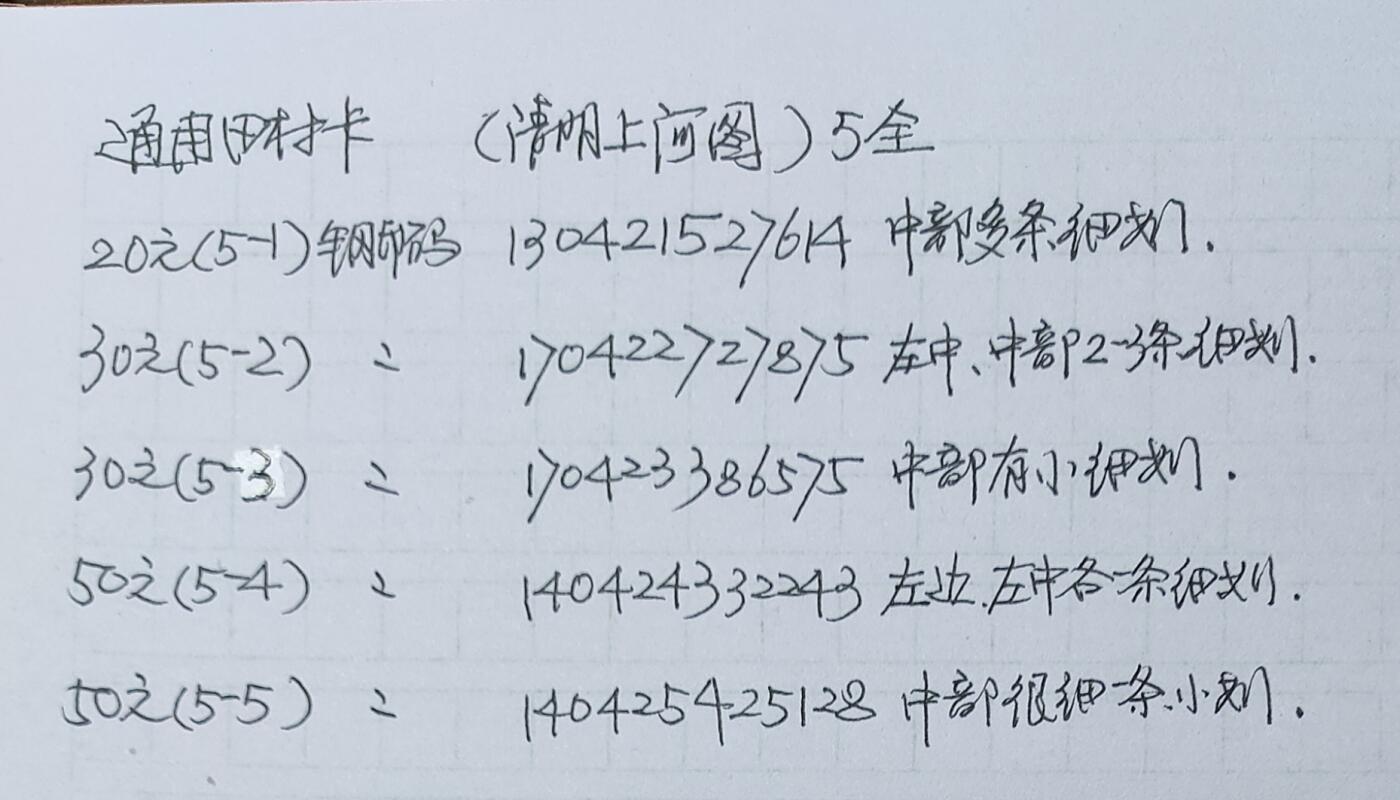 通用田村卡 (清明上河图)5全
20元(5-1)钢印码 130421527614 中部多条细划.
30元(5-2) 〃 170422727875 左中、中部2-3条细划.
30元(5-3) 〃 170423386575 中部有小细划.
50元(5-4) 〃 140424332243 左边.左中各一条细划.
50元(5-5) 〃 140425425128 中部很细一条小划.